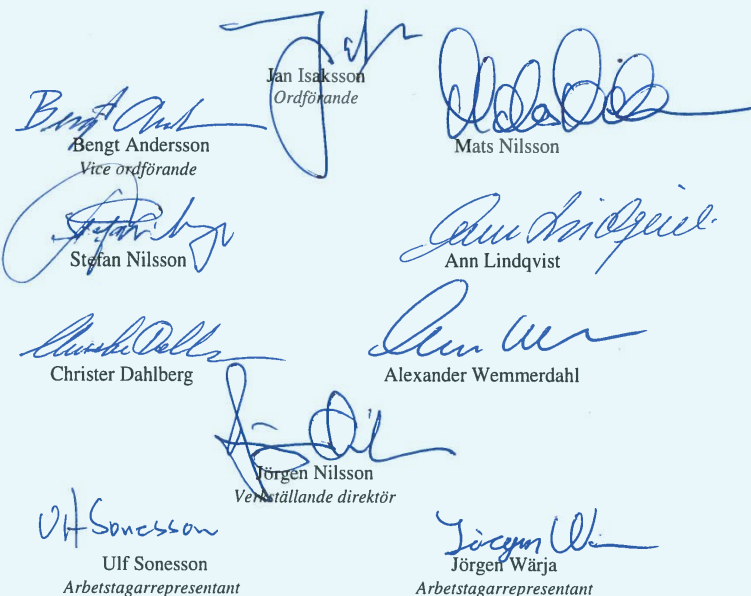 Jan Isaksson
Ordförande
Bengt Andersson
Vice ordförande
Mats Nilsson
Stefan Nilsson
Ann Lindqvist
Christer Dahlberg
Alexander Wemmerdahl
Jörgen Nilsson
Verkställande direktör
Ulf Sonesson
Ulf Sonesson
Arbetstagarrepresentant
Jörgen Wärja
Arbetstagarrepresentant